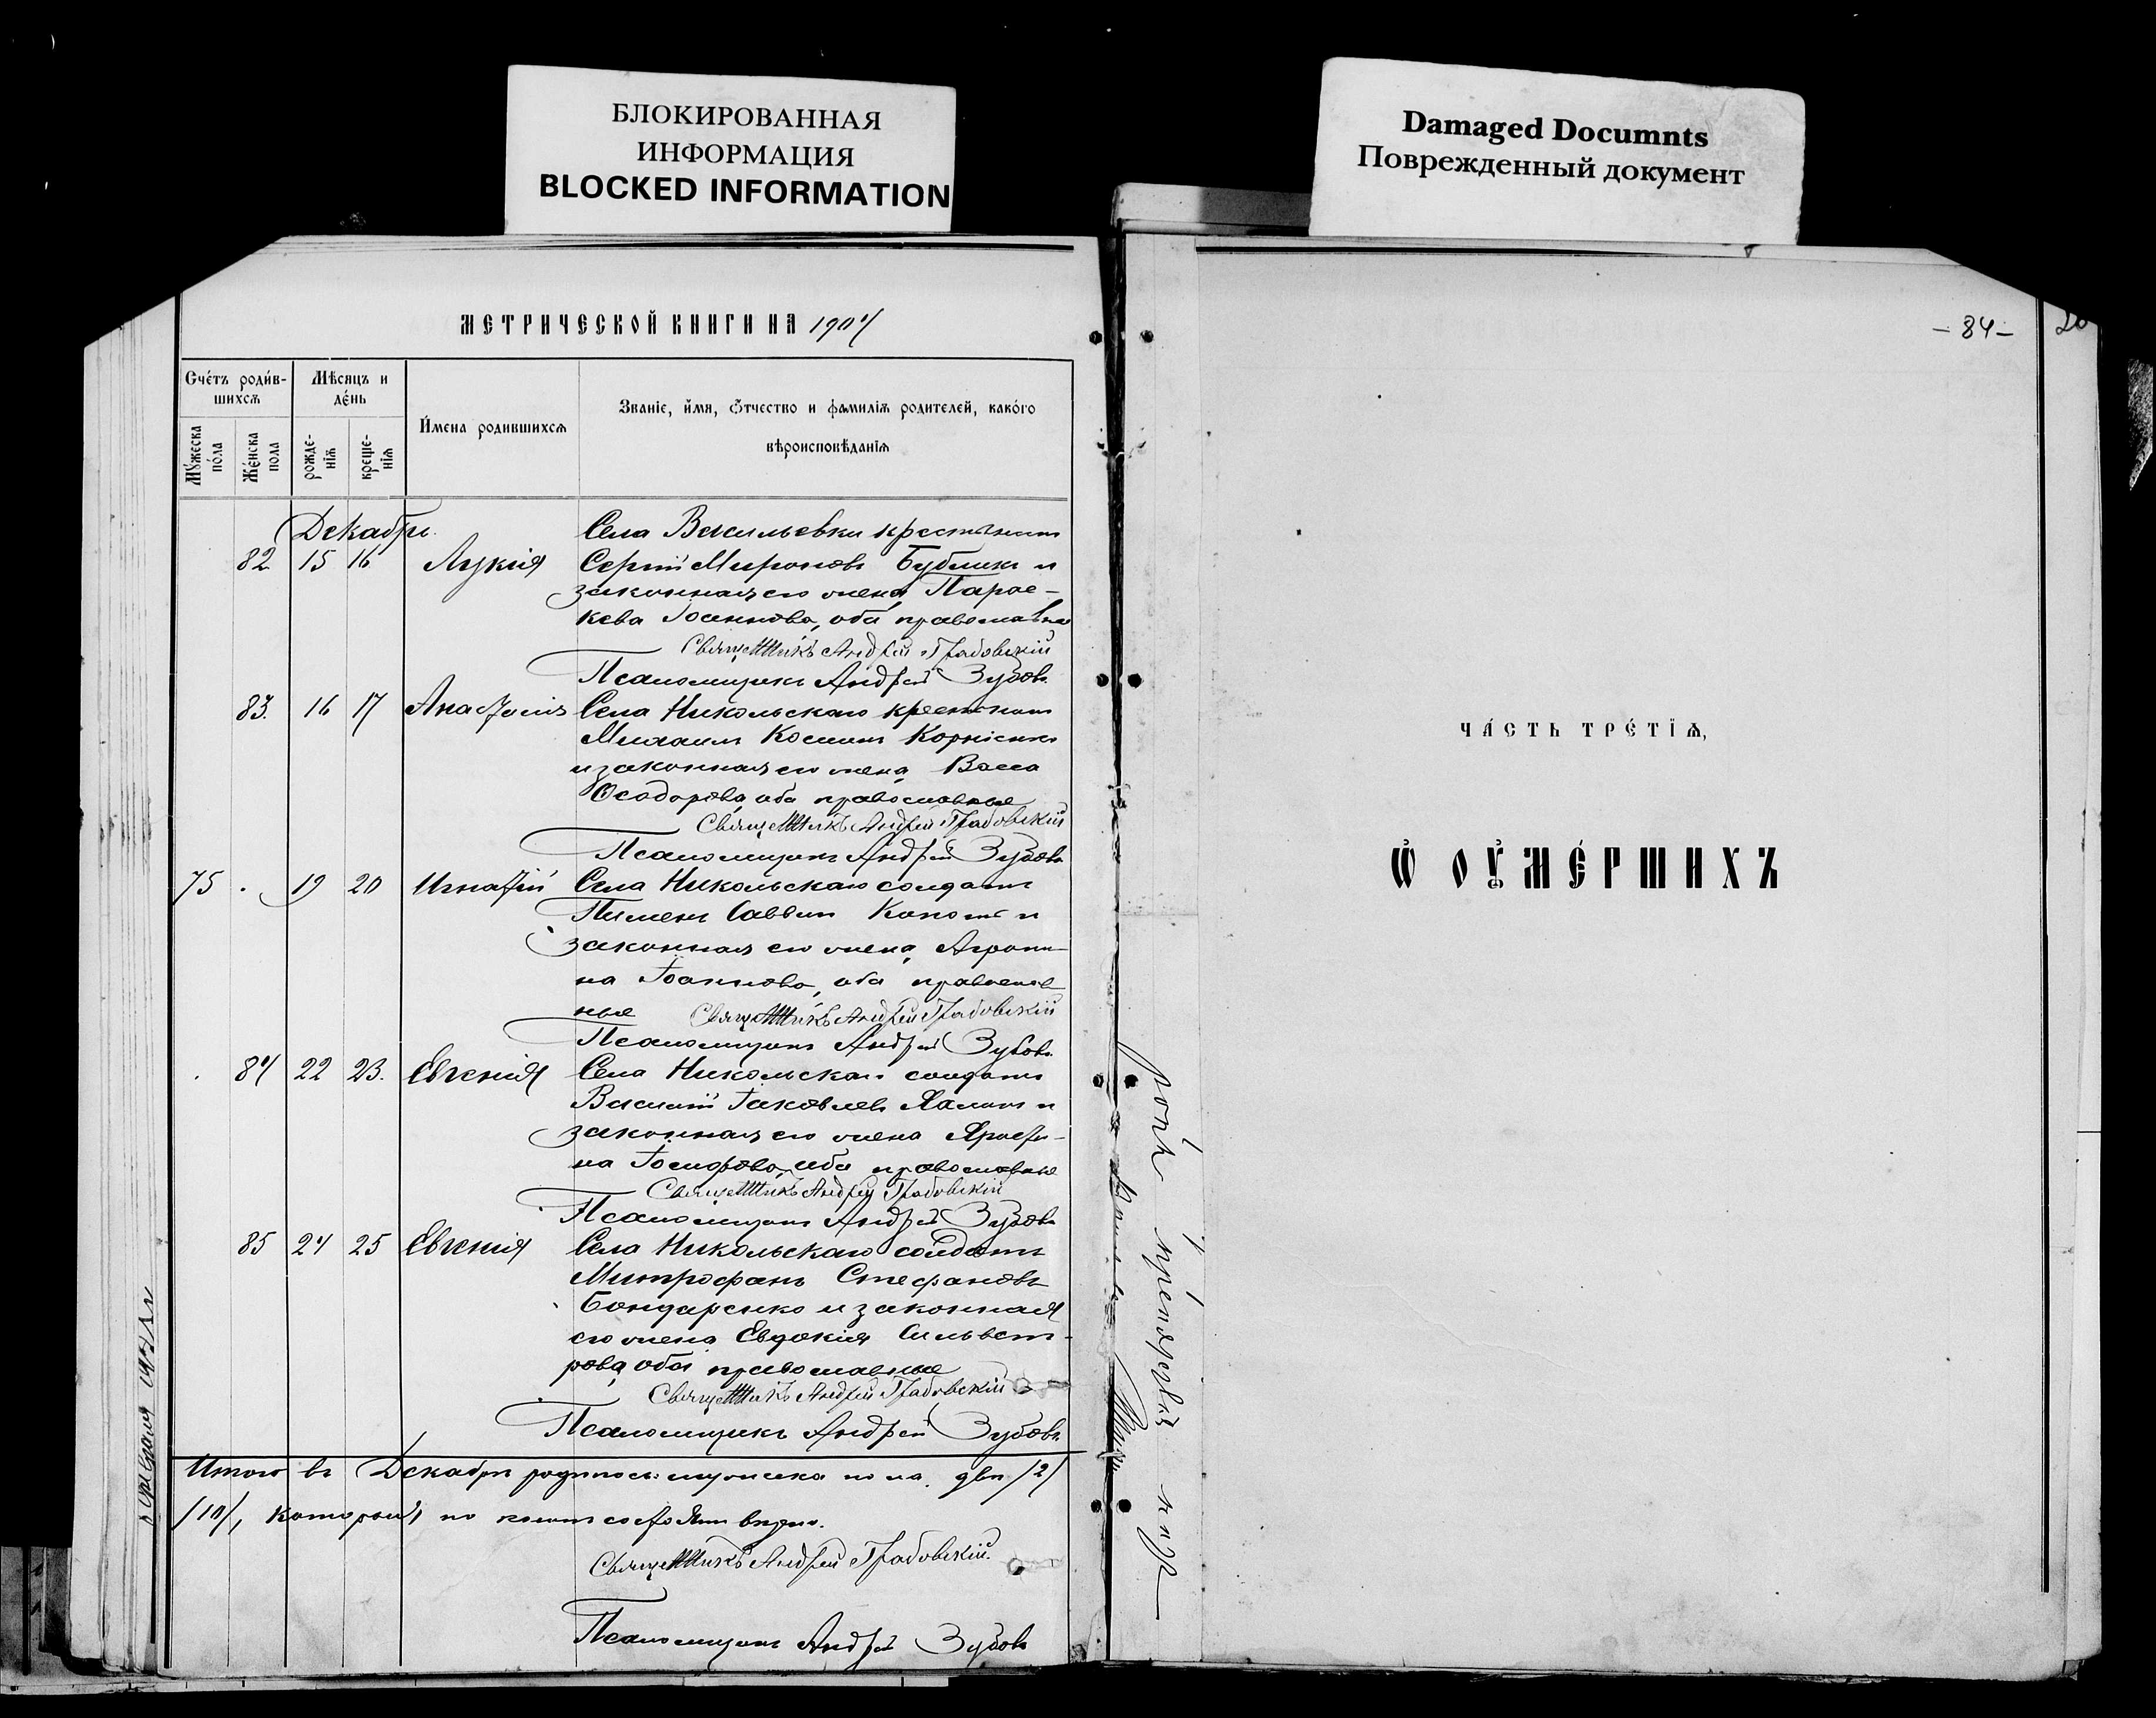 БЛОКИРОВАННАЯ
ИНФОРМАЦИЯ
BLOCKED INFORMATION
Damaged Documnts
Поврежденный документ
МЕТРИЧЕСКОЙ КНИГИ НА 1904
Счетъ родив-
шихся
Мѣсяцъ и
день
Имена родившихся
Званіе, имя, отчество и фамилія родителей, какого
вѣроисповѣданія
Мужеска
пола
Женска
пола
рожде-
нія
креще-
нія
Декабрь
Села Васильевки крестьянин
82 15 16 Лукія Сергій Мироновъ Бубликъ и
законная его жена Парас-
кева Іоаннова, оба православные
Священникъ Андрей Грабовскій
Псаломщикъ Андрей Зубовъ
83. 16 17 Анастасія Села Никольскаго крестьянин
Михаилъ Косминъ Корніенко
и законная его жена Васса
Ѳеодорова, оба православные
Священникъ Андрей Грабовскій
Псаломщикъ Андрей Зубовъ
75 19 20 Игнатій Села Никольскаго солдатъ
Пименъ Саввинъ и
законная его жена Агрипи-
на Іоаннова, оба православ
ные Священникъ Андрей Грабовскій
Псаломщикъ Андрей Зубовъ
84 22 23. Евгенія Села Никольскаго солдатъ
Василій Іаковлевъ и
законная его жена
на оба православные
Священникъ Андрей Грабовскій
Псаломщикъ Андрей Зубовъ
85 24 25 Евгенія Села Никольскаго солдатъ
Митрофанъ Стефановъ
Бондаренко и законная
его жена Евдокія Сильвест-
рова, оба православные
Священникъ Андрей Грабовскій
Псаломщикъ Андрей Зубовъ
Итого въ Декабрѣ родилось: мужеска пола два /2/
/10/, который по
Священникъ Андрей Грабовскій.
Псаломщикъ Андрей Зубовъ
-84-
ЧАСТЬ ТРЕТІЯ,
Ѽ ОУМЕРШИХЪ